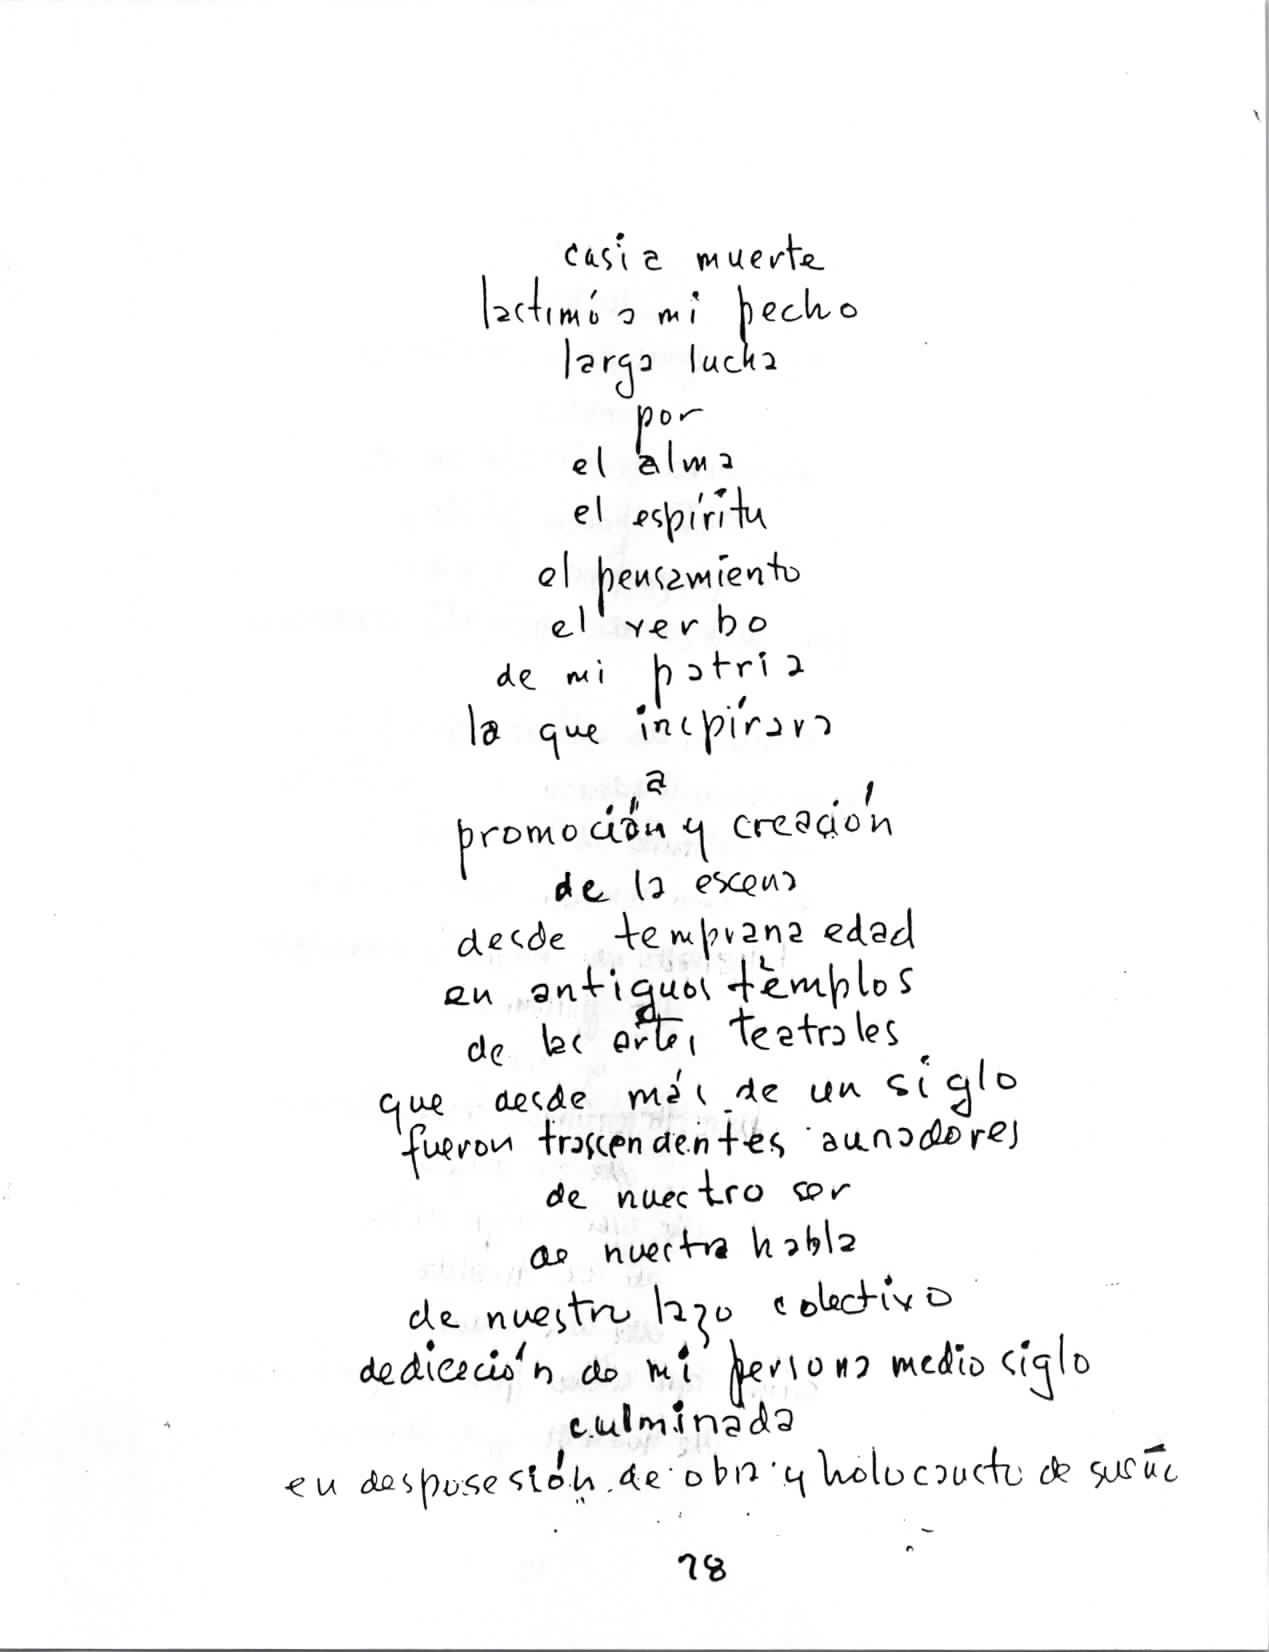 casi a muerte
lastimóa mi pecho
larga lucha
por
el alma
el espíritu
el pensamiento
el verbo
de mi patria
la que inspírara
a
promoción y creación
de la escena
desde temprana edad
en antiguos templos
de las artes teatrales
que desde más de un siglo
fueron trascendentes aunadores
de nuestro ser
de nuestra habla
de nuestro lazo colectivo
dedicación de mi persona medio siglo
culminada
en desposesión de obra y holocausto de
78